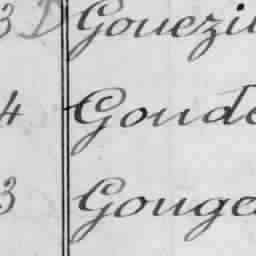 3 D Gouezi
4 Goude
3 Gouge